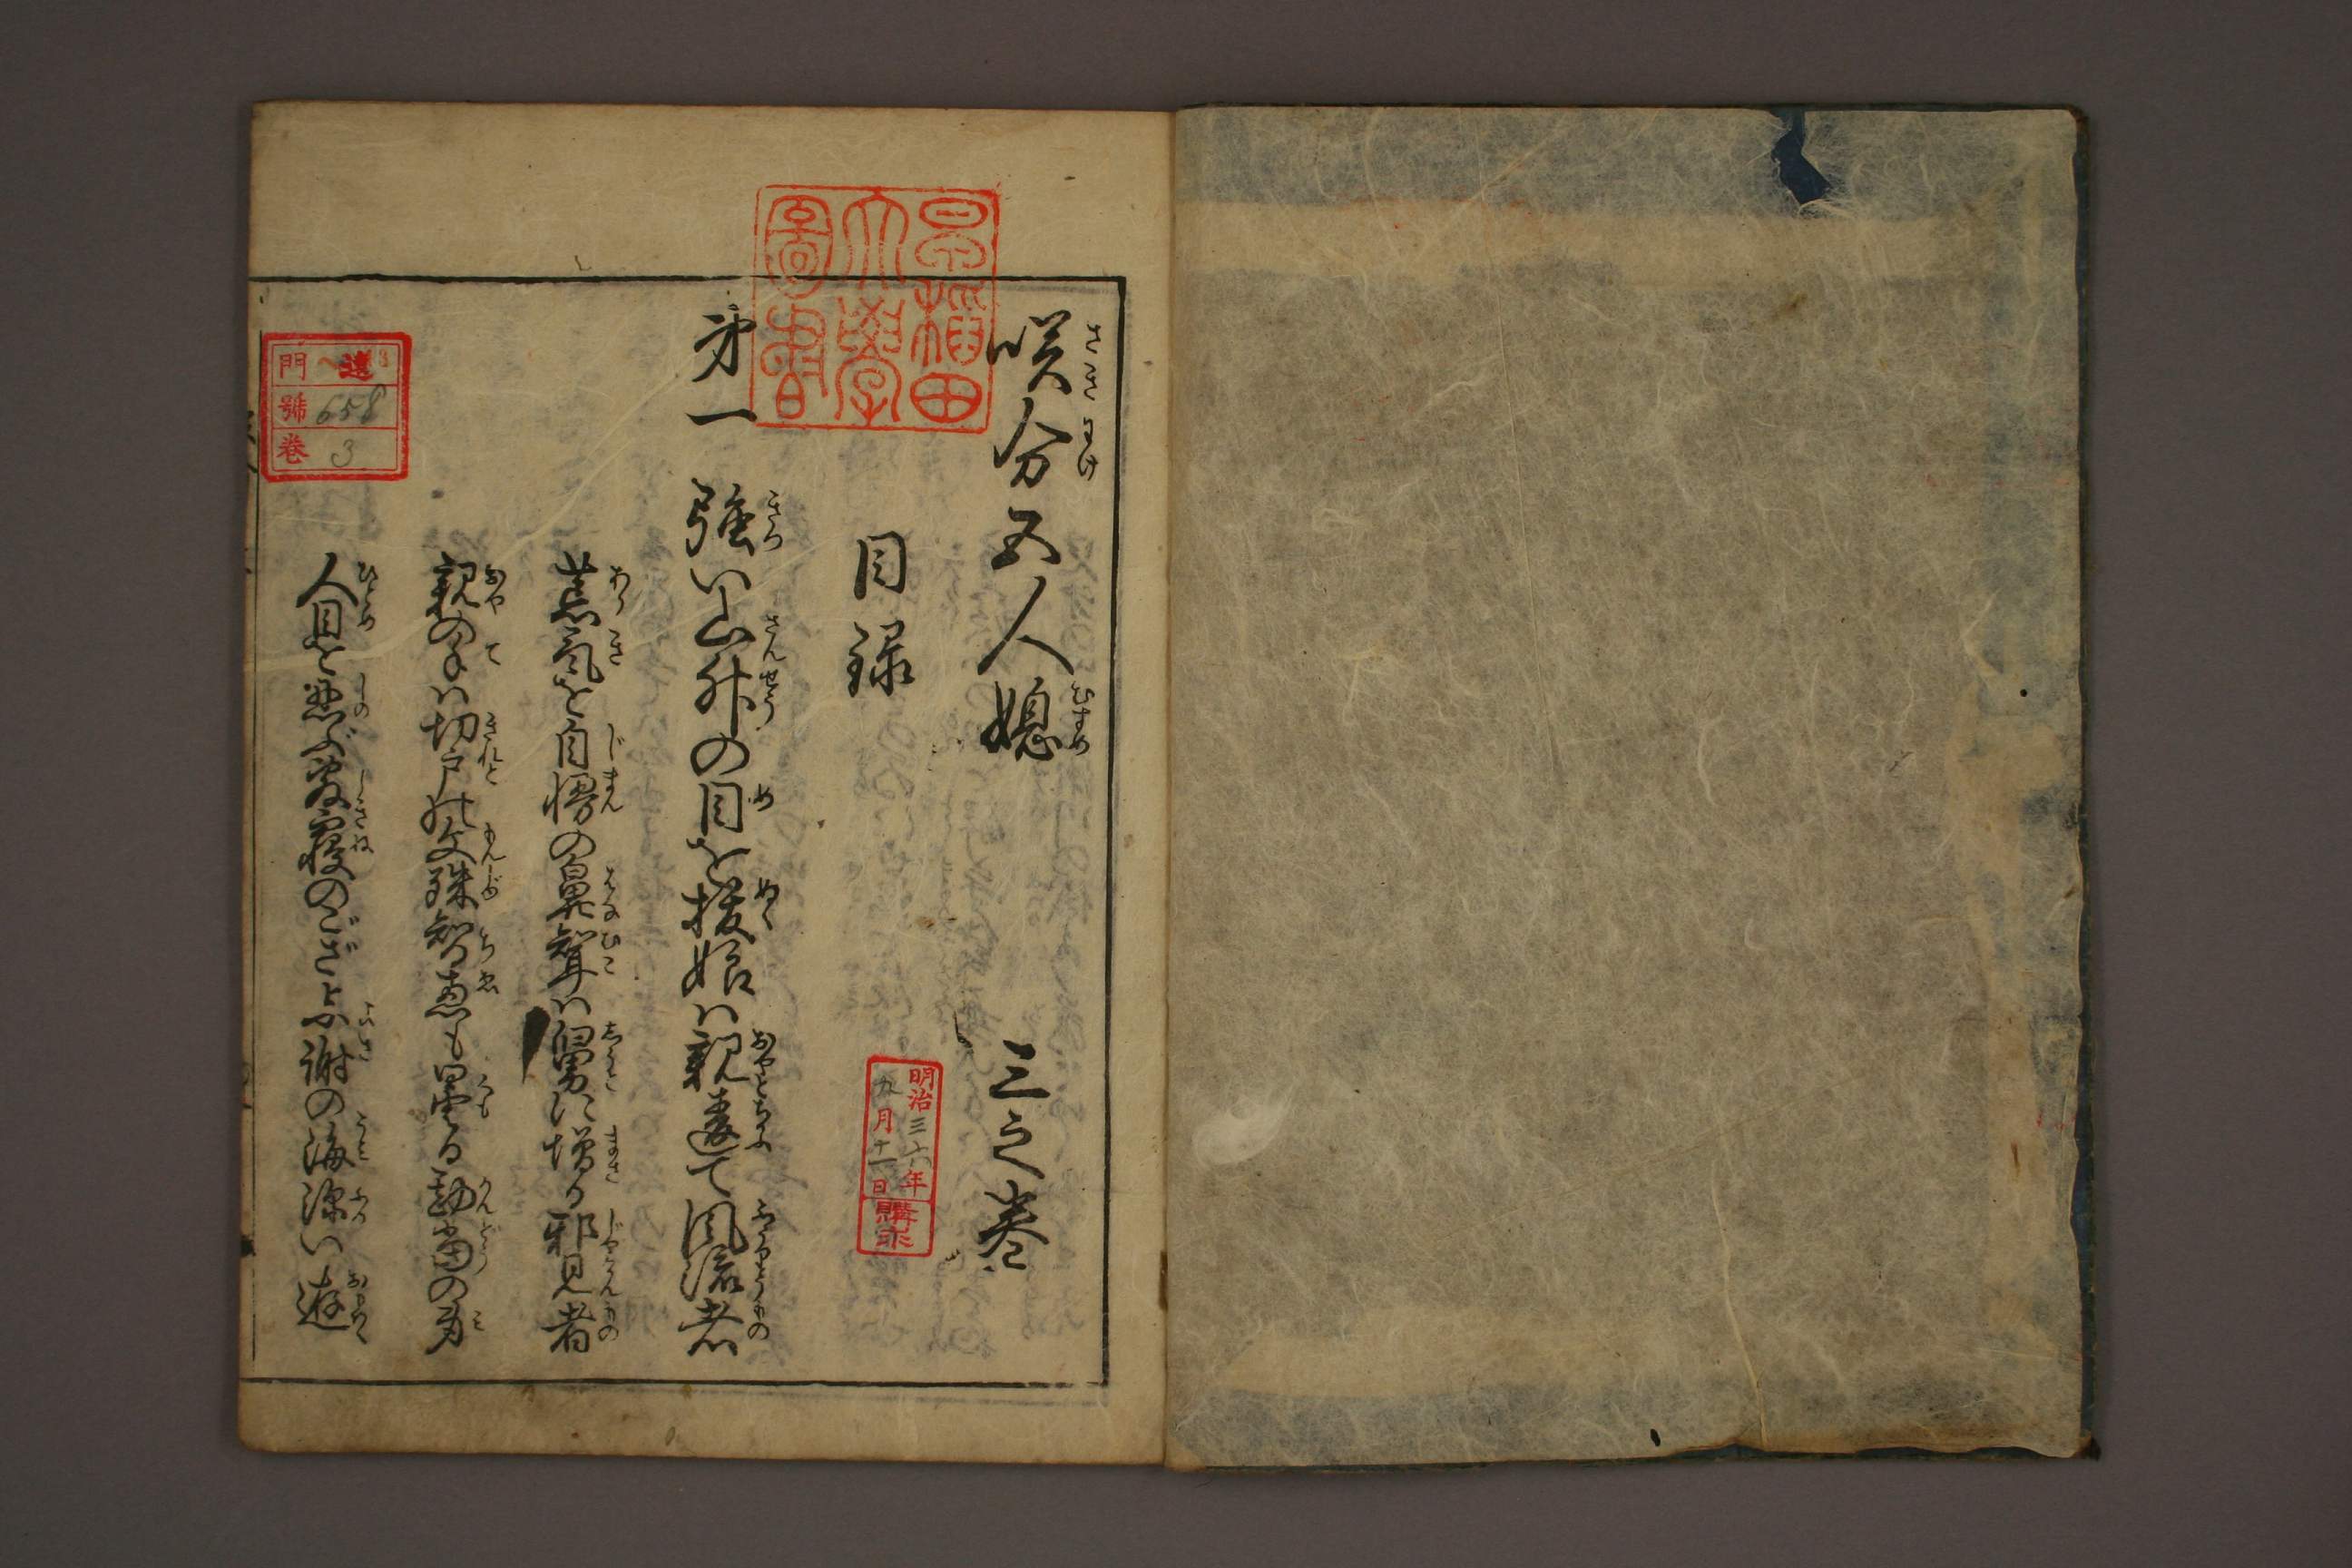 咲分五人媳 三之巻
目録
第一 強い山升の目を抜娘は親違て風流者
荒気を自慢の鼻聟は舅に増る邪見者
親の手は切戸の文殊智恵も曇る勘当の身
人目を忍ぶ寝のござよ謝の海深い遊
早稲田大學圖書
明治三六年九月十一日購求
門 13
號 658
巻 3